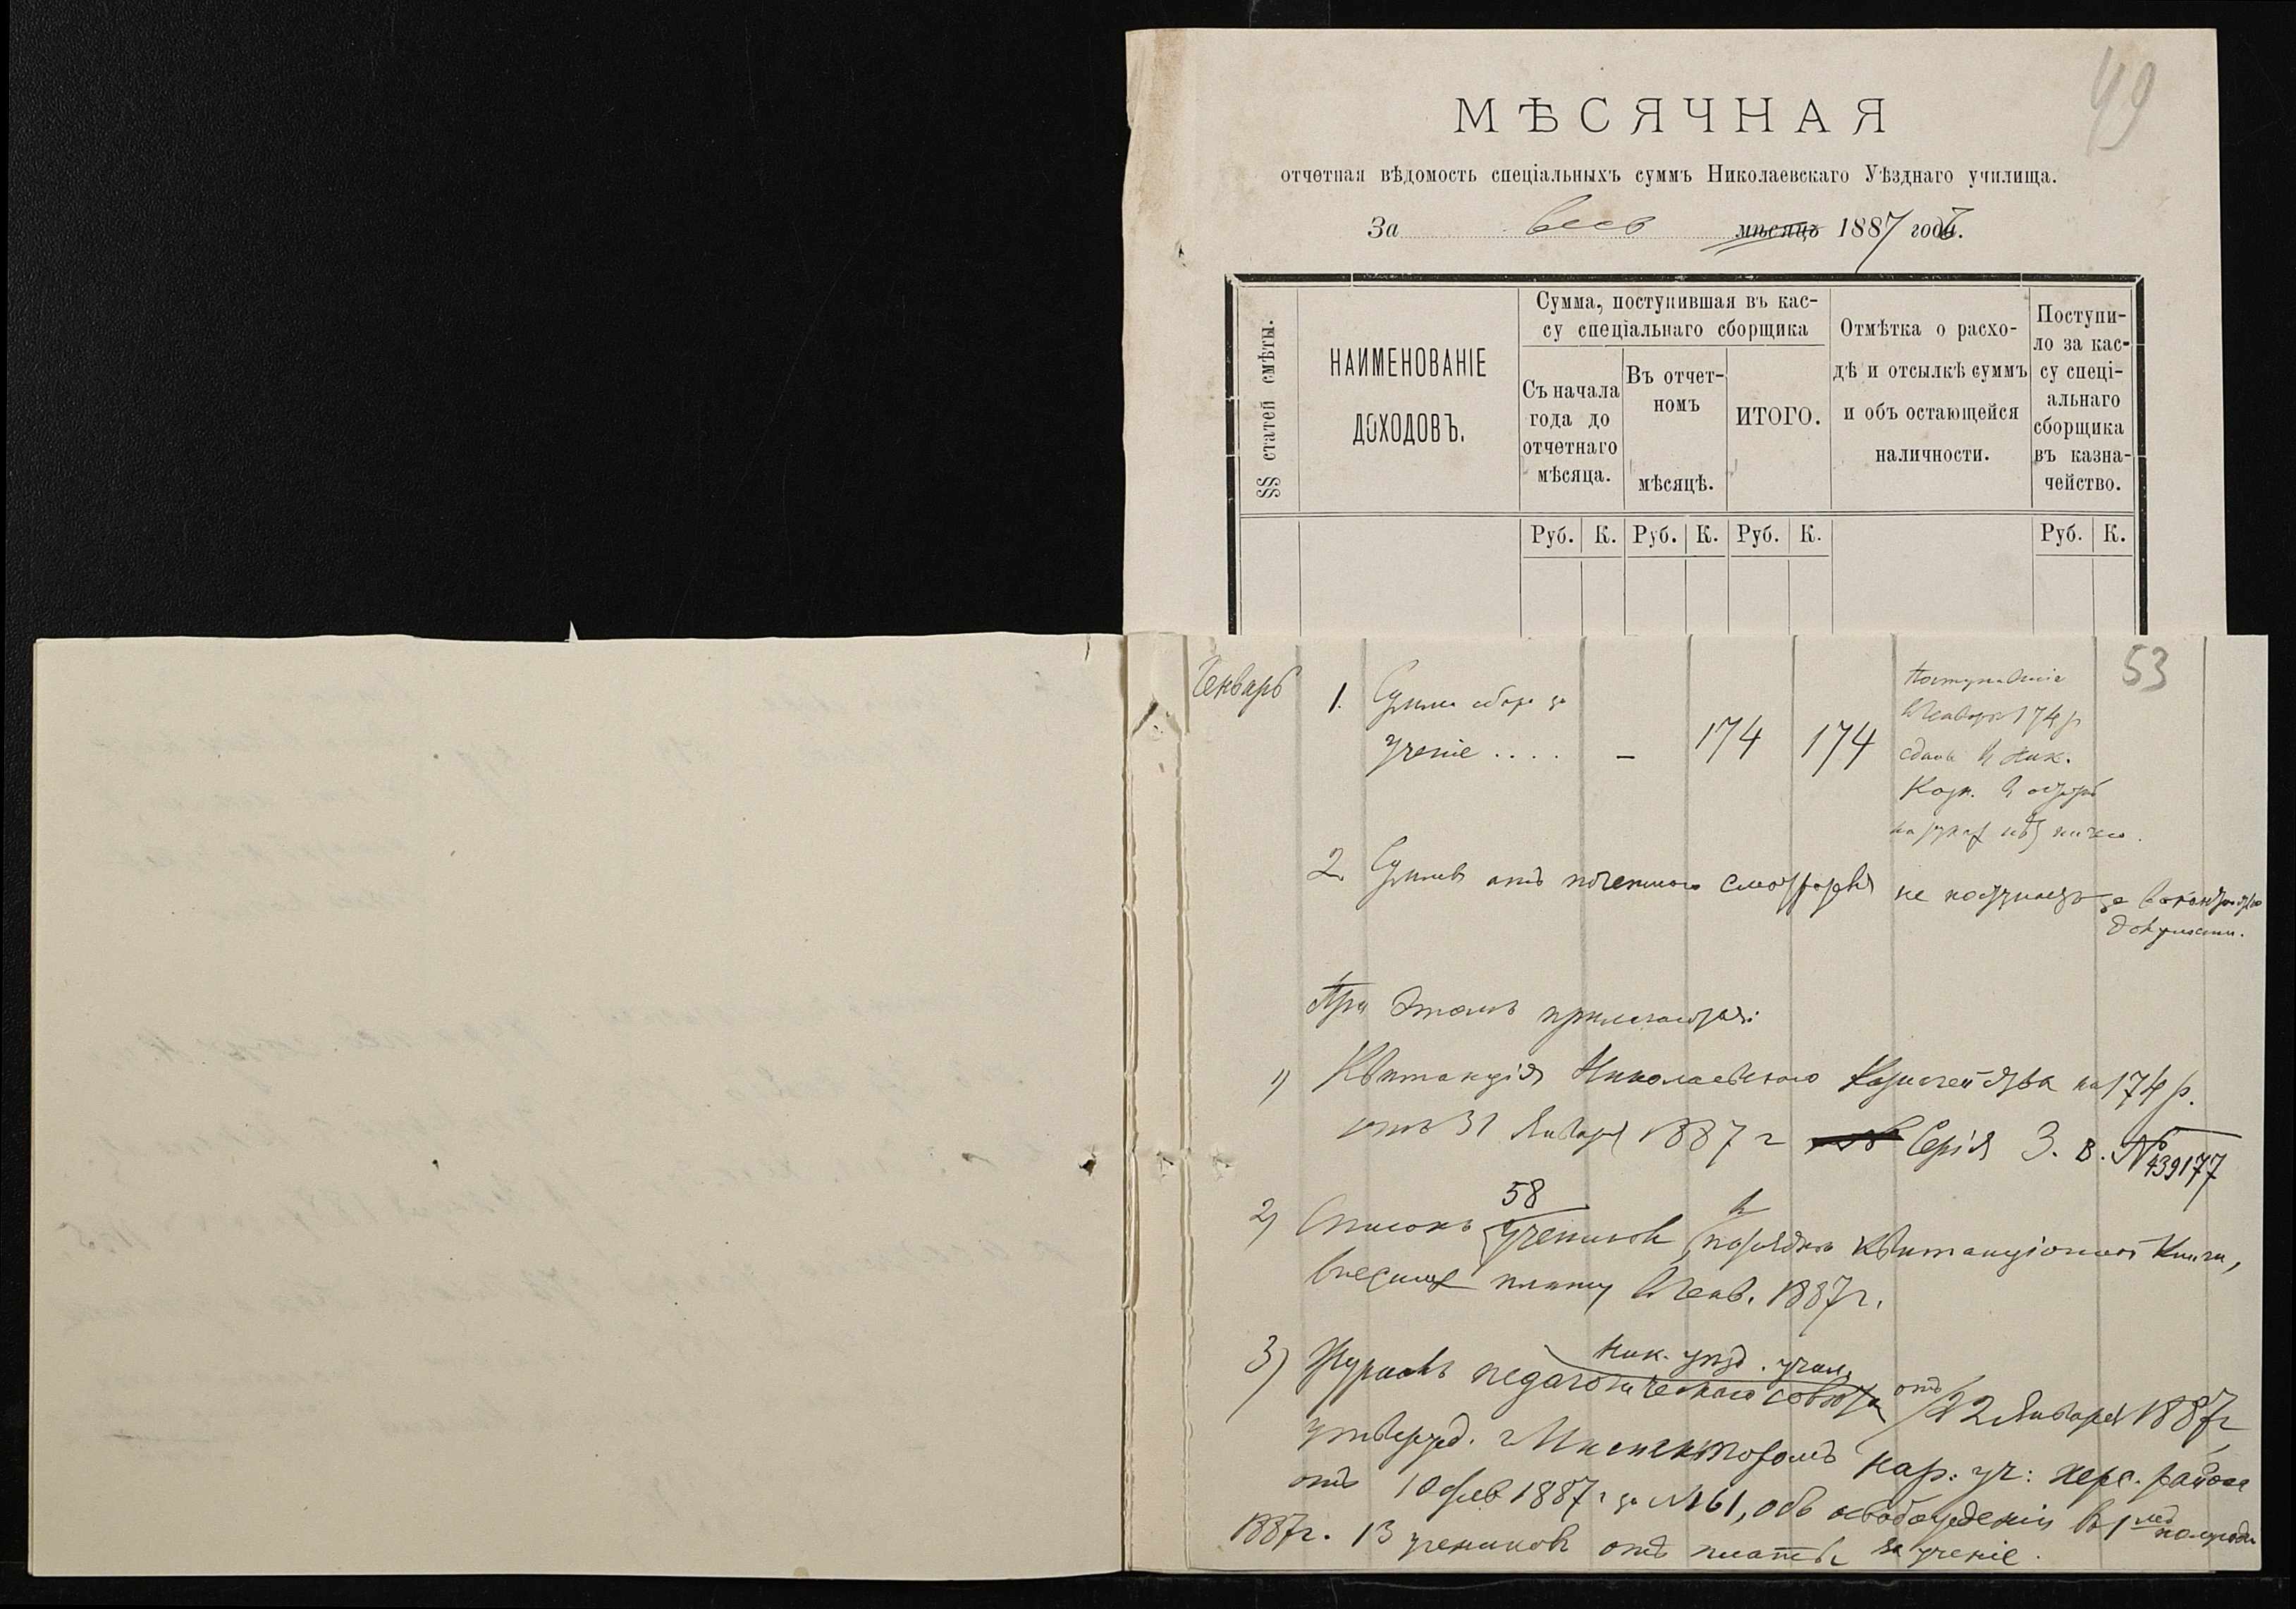 49
МѢСЯЧНАЯ
отчетная вѣдомость спеціальныхъ суммъ Николаевскаго Уѣзднаго училища.
За весь мѣсяцъ 1887 годъ.
§§ статей смѣты.
НАИМЕНОВАНІЕ
ДОХОДОВЪ.
Сумма, поступившая въ кас-
су спеціальнаго сборщика
Съ начала
года до
отчетнаго
мѣсяца.
Въ отчет-
номъ
мѣсяцѣ.
ИТОГО.
Отмѣтка о расхо-
дѣ и отсылкѣ суммъ
и объ остающейся
наличности.
Поступи-
ло за кас-
су спеці-
альнаго
сборщика
въ казна-
чейство.
Руб. К. Руб. К. Руб. К. Руб. К.
53
Генварь 1. Сумма сбора за
ученіе . . . . — 174 174
Поступившіе
въ Генварѣ 174 р
сданы въ Ник.
Казн. въ
на рукахъ нѣтъ ничего.
2. Суммъ отъ почетнаго смотрителя не поступаетъ за
должности.
При этомъ прилагаются:
1) Квитанція Николаевскаго Казначейства на 174 р.
отъ 31 Января 1887 г Серія З. в. № 439177
2) Списокъ 58 учениковъ, въ порядкѣ квитанціонной книги,
внесшихъ плату въ Генв. 1887 г.
3) Журналъ педагогическаго совѣта Ник. уѣзд. учил. отъ 22 Января 1887 г
утвержд. г Инспекторомъ нар: уч: херс. района
отъ 10 фев 1887 г за № 161, объ освобожденіи въ 1мъ полугодіи
1887 г. 13 учениковъ отъ платы за ученіе.